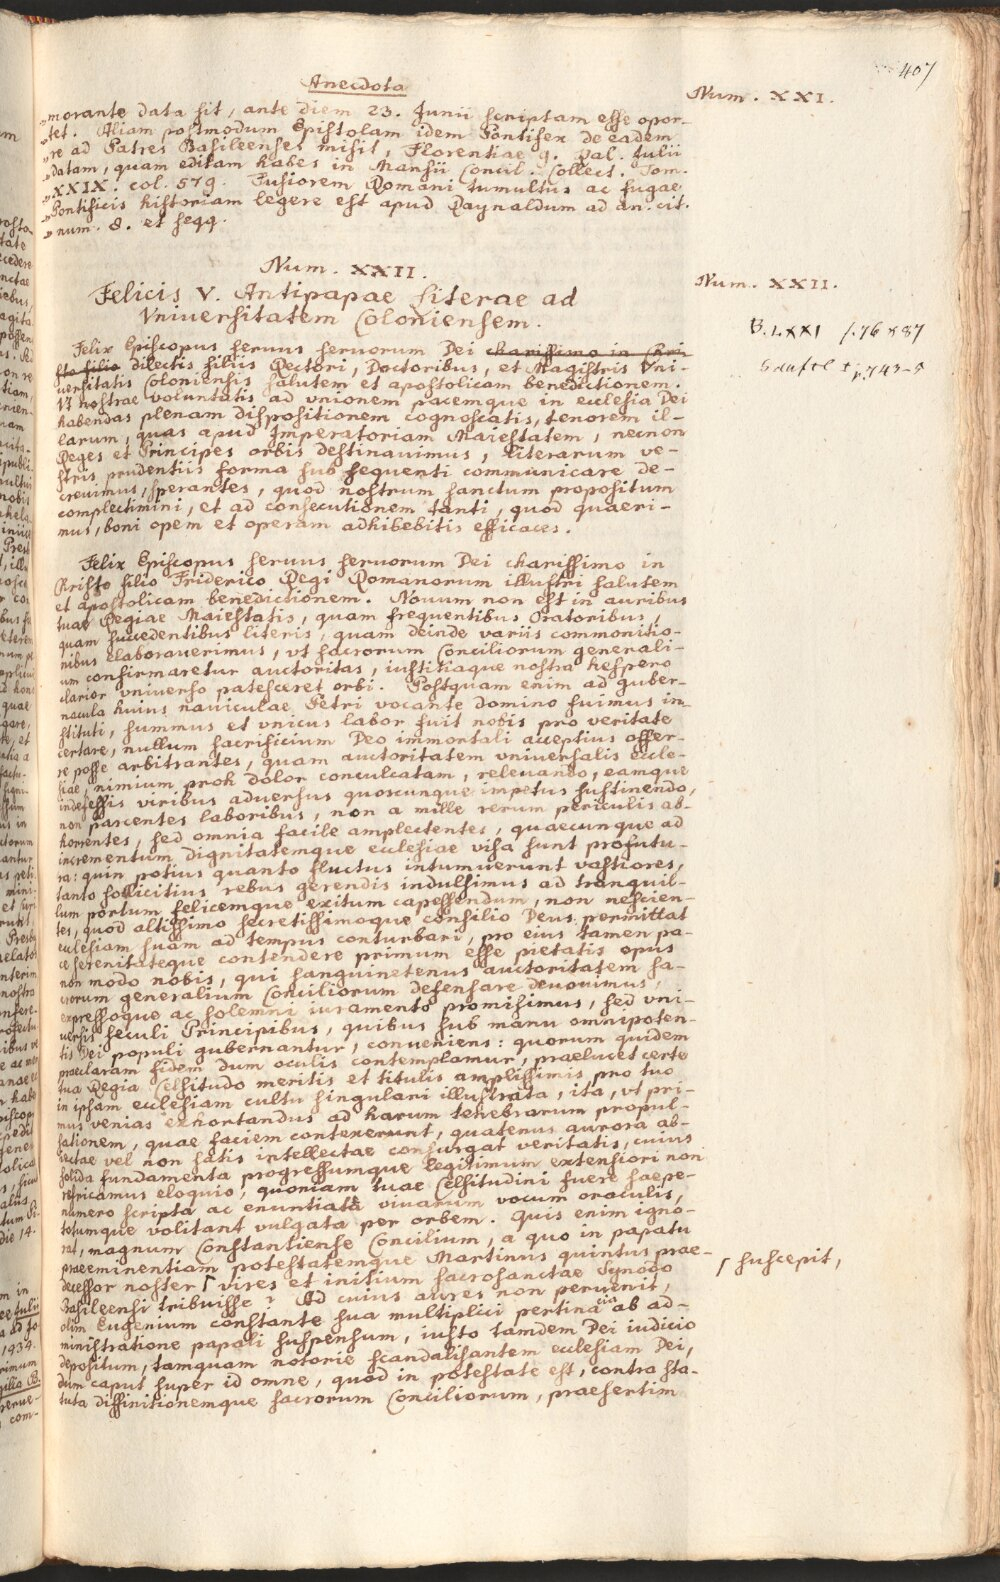 407
Anecdota
Num. XXI.
„morante data sit, ante diem 23. Junii scriptam esse opor-
„tet. Aliam postmodum Epistolam idem Pontifex de eadem
„re ad Patres Basileenses misit, Florentiae 9. Kal. Julii
„datam, quam editam habes in Mansii Concil. Collect. Tom.
„XXIX. col. 579. Fusiorem Romani tumultus ac fugae
„Pontificis historiam legere est apud Raynaldum ad an. cit.
„num. 8. et seqq.
Num. XXII.
Num. XXII.
Felicis V. Antipapae literae ad
Vniuersitatem Coloniensem.
B. LXXI f. 76 x 87
p. 742-5
Felix Episcopus seruus seruorum Dei charissimo in Chri-
sto filio dilectis filiis Rectori, Doctoribus, et Magistris Vni-
uersitatis Coloniensis salutem et apostolicam benedictionem.
Vt nostrae voluntatis ad vnionem pacemque in ecclesia Dei
habendas plenam dispositionem cognoscatis, tenorem il-
larum, quas apud Imperatoriam Maiestatem, necnon
Reges et Principes orbis destinauimus, literarum ve-
stris prudentiis forma sub sequenti communicare de-
creuimus, sperantes, quod nostrum sanctum propositum
complectimini, et ad consecutionem tanti, quod quaeri-
mus, boni opem et operam adhibebitis efficaces.
Felix Episcopus seruus seruorum Dei charissimo in
Christo filio Friderico Regi Romanorum illustri salutem
et apostolicam benedictionem. Nouum non est in auribus
tuae Regiae Maiestatis, quam frequentibus Oratoribus,
quam succedentibus literis, quam deinde variis commonitio-
nibus elaborauerimus, vt sacrorum Conciliorum generali-
um confirmaretur auctoritas, iustitiaque nostra hespero
clarior vniuerso patesceret orbi. Postquam enim ad guber-
nacula huius nauiculae Petri vocante domino fuimus in-
stituti, summus et vnicus labor fuit nobis pro veritate
certare, nullum sacrificium Deo immortali acceptius offer-
re posse arbitrantes, quam auctoritatem vniuersalis eccle-
siae, nimium proh dolor conculcatam, releuando, eamque
indefessis viribus aduersus quoscunque impetus sustinendo,
non parcentes laboribus, non a mille rerum periculis ab-
horrentes, sed omnia facile amplectentes, quaecunque ad
incrementum dignitatemque ecclesiae visa sunt profutu-
ra: quin potius quanto fluctus intumuerunt vastiores,
tanto sollicitius rebus gerendis indulsimus ad tranquil-
lum portum felicemque exitum capessendum, non nescien-
tes, quod altissimo secretissimoque consilio Deus permittat
ecclesiam suam ad tempus conturbari, pro eius tamen pa-
ce serenitateque contendere primum esse pietatis opus
non modo nobis, qui sanguinetenus auctoritatem sa-
crorum generalium Conciliorum defensare deuouimus,
expressoque ac solemni iuramento promisimus, sed vni-
uersis seculi Principibus, quibus sub manu omnipoten-
tis Dei populi gubernantur, conueniens: quorum quidem
praeclaram fidem dum oculis contemplamur, praelucet certe
tua Regia Celsitudo meritis et titulis amplissimis pro tuo
in ipsam ecclesiam cultu singulari illustrata, ita, vt pri-
mus venias exhortandus ad harum tenebrarum propul-
sationem, quae faciem contexerunt, quatenus aurora ab-
iectae vel non satis intellectae consurgat veritatis, cuius
solida fundamenta progressumque legitimum extensiori non
refricamus eloquio, quoniam tuae Celsitudini fuere saepe-
numero scripta ac enuntiata viuarum vocum oraculis,
totumque volitant vulgata per orbem. Quis enim igno-
rat, magnum Constantiense Concilium, a quo in papatu
praeeminentiam potestatemque Martinus quintus prae-
decessor noster ⌈ vires et initium sacrosanctae Synodo
⌈ suscepit,
Basileensi tribuisse? Ad cuius aures non peruenit,
olim Eugenium constante sua multiplici pertinacia ab ad-
ministratione papali suspensum, iusto tamdem Dei iudicio
depositum, tamquam notorie scandalisantem ecclesiam Dei,
dum caput super id omne, quod in potestate est, contra sta-
tuta diffinitionemque sacrorum Conciliorum, praesertim